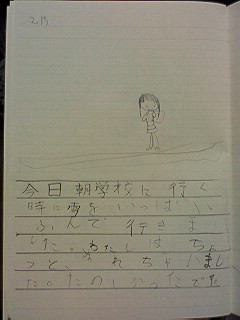 2.13
今日朝学校に行く
時に雪をいっぱい
ふんで行きま
した。わたしはちょ
っと、おれちゃいまし
た。たのしかったです